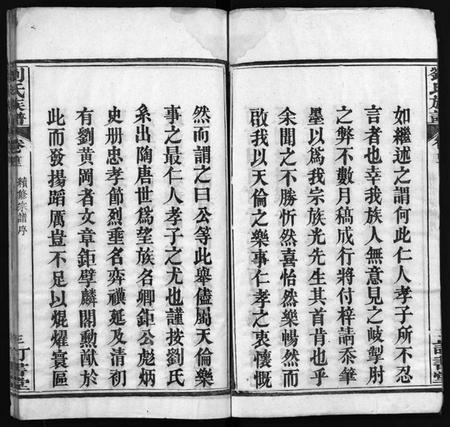 劉氏族譜
卷首
如繼述之謂何此仁人孝子所不忍
言者也幸我族人無意見之歧掣肘
之弊不數月稿成行將付梓請泰筆
墨以爲我宗族光先生其首肯也乎
余聞之不勝忻然喜怡然樂暢然而
啟我以天倫之樂事仁孝之衷懷慨
然而謂之曰公等此舉儘屬天倫樂
事之最仁人孝子之尤也謹按劉氏
系出陶唐世爲望族名卿鉅公彪炳
史册忠孝節烈垂名弈禩延及清初
有劉黄岡者文章鉅擘麟閣勳猷於
此而發揚蹈厲豈不足以焜燿寰區
劉氏族譜
卷首
賴修宗譜序
三
訂書堂